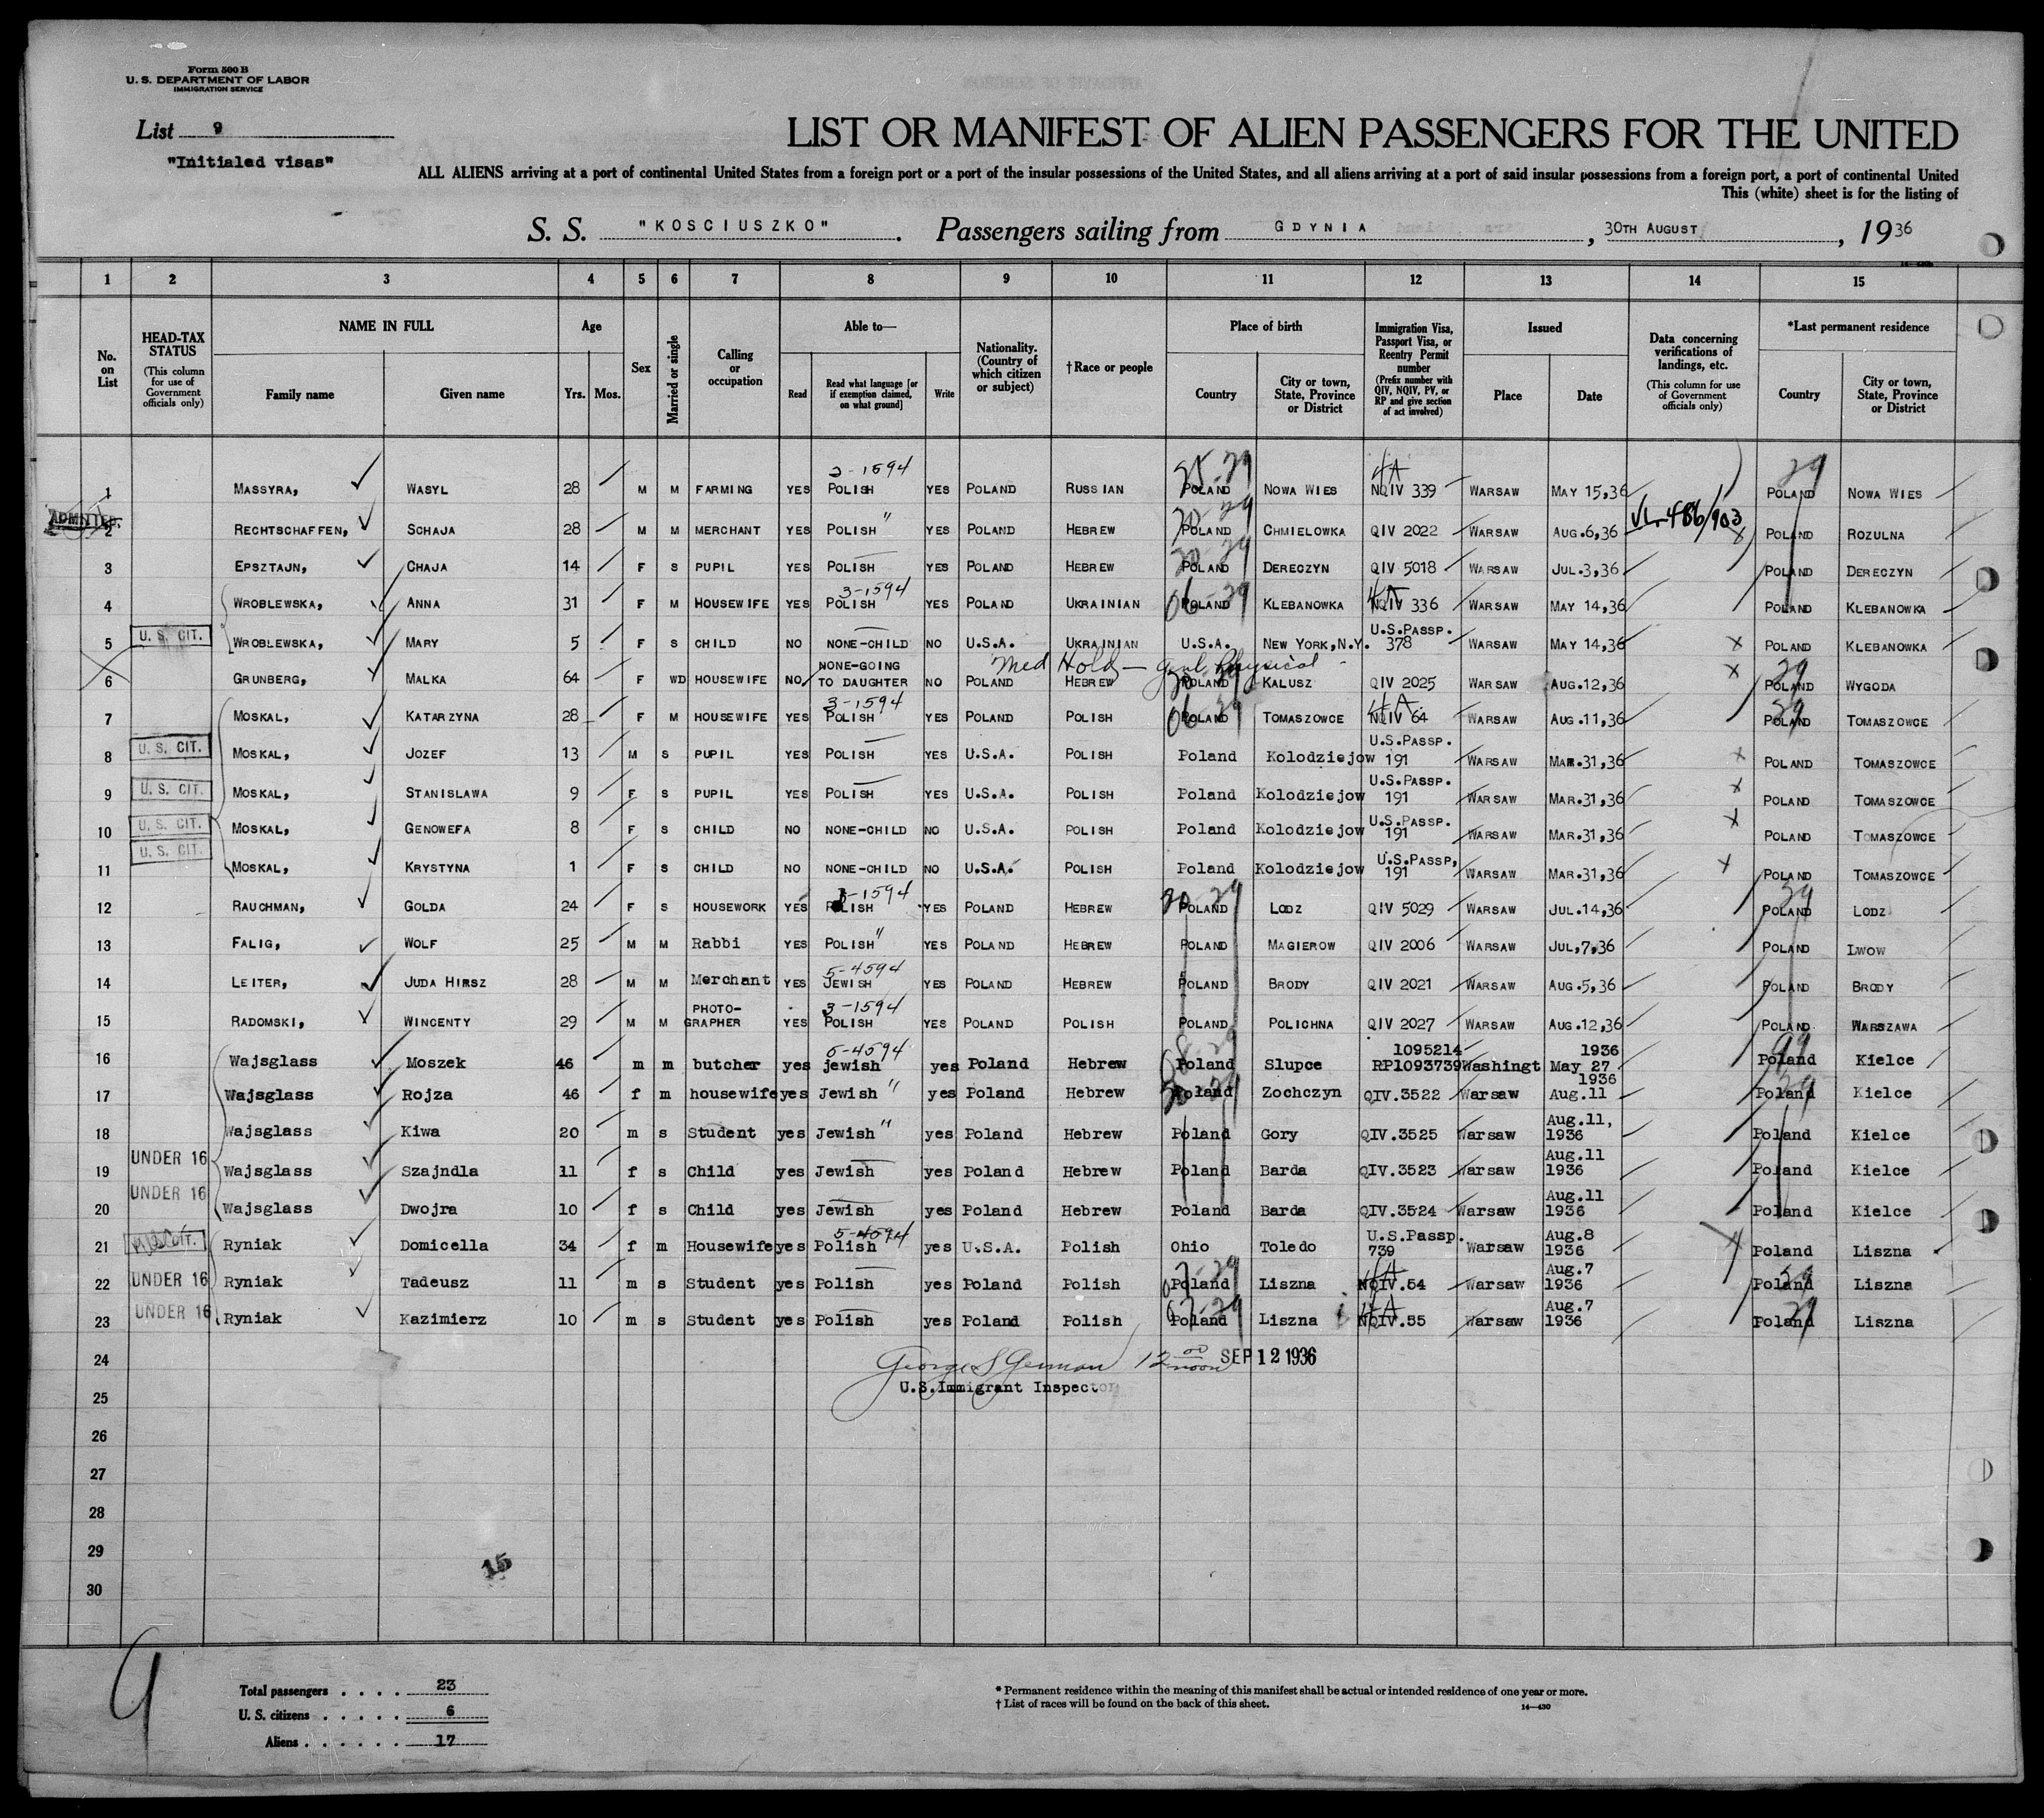 Form 500 B
U. S. DEPARTMENT OF LABOR
IMMIGRATION SERVICE
List 9
"Initialed visas"
LIST OR MANIFEST OF ALIEN PASSENGERS FOR THE UNITED
ALL ALIENS arriving at a port of continental United States from a foreign port or a port of the insular possessions of the United States, and all aliens arriving at a port of said insular possessions from a foreign port, a port of continental United
This (white) sheet is for the listing of
S. S. "KOSCIUSZKO". Passengers sailing from GDYNIA, 30TH AUGUST, 1936
1 2 3 4 5 6 7 8 9 10 11 12 13 14 15
No. on List
HEAD-TAX STATUS
(This column for use of Government officials only)
NAME IN FULL
Family name Given name
Age
Yrs. Mos.
Sex
Married or single
Calling or occupation
Able to—
Read Read what language [or if exemption claimed, on what ground] Write
Nationality. (Country of which citizen or subject)
†Race or people
Place of birth
Country City or town, State, Province or District
Immigration Visa, Passport Visa, or Reentry Permit number
(Prefix number with QIV, NQIV, PV, or RP and give section of act involved)
Issued
Place Date
Data concerning verifications of landings, etc.
(This column for use of Government officials only)
*Last permanent residence
Country City or town, State, Province or District
2-1594 25-29 4A 29
1 MASSYRA, WASYL 28 M M FARMING YES POLISH YES POLAND RUSSIAN POLAND NOWA WIES NQIV 339 WARSAW MAY 15,36 POLAND NOWA WIES
ADMITTED. VL-486/903
2 RECHTSCHAFFEN, SCHAJA 28 M M MERCHANT YES POLISH " YES POLAND HEBREW POLAND CHMIELOWKA QIV 2022 WARSAW AUG.6,36 X POLAND ROZULNA
3 EPSZTAJN, CHAJA 14 F S PUPIL YES POLISH YES POLAND HEBREW POLAND DERECZYN QIV 5018 WARSAW JUL.3,36 POLAND DERECZYN
3-1594 06-29 4A
4 WROBLEWSKA, ANNA 31 F M HOUSEWIFE YES POLISH YES POLAND UKRAINIAN POLAND KLEBANOWKA NQIV 336 WARSAW MAY 14,36 POLAND KLEBANOWKA
U. S. CIT. U.S.PASSP.
5 WROBLEWSKA, MARY 5 F S CHILD NO NONE-CHILD NO U.S.A. UKRAINIAN U.S.A. NEW YORK,N.Y. 378 WARSAW MAY 14,36 X POLAND KLEBANOWKA
NONE-GOING Med Hold - Genl Physical - X 29
6 GRUNBERG, MALKA 64 F WD HOUSEWIFE NO TO DAUGHTER NO POLAND HEBREW POLAND KALUSZ QIV 2025 WARSAW AUG.12,36 POLAND WYGODA
3-1594 06-29 4A. 29
7 MOSKAL, KATARZYNA 28 F M HOUSEWIFE YES POLISH YES POLAND POLISH POLAND TOMASZOWCE NQIV 64 WARSAW AUG.11,36 POLAND TOMASZOWCE
U. S. CIT. U.S.PASSP.
8 MOSKAL, JOZEF 13 M S PUPIL YES POLISH YES U.S.A. POLISH Poland Kolodziejow 191 WARSAW MAR.31,36 X POLAND TOMASZOWCE
U. S. CIT. U.S.PASSP.
9 MOSKAL, STANISLAWA 9 F S PUPIL YES POLISH YES U.S.A. POLISH Poland Kolodziejow 191 WARSAW MAR.31,36 X POLAND TOMASZOWCE
U. S. CIT. U.S.PASSP.
10 MOSKAL, GENOWEFA 8 F S CHILD NO NONE-CHILD NO U.S.A. POLISH Poland Kolodziejow 191 WARSAW MAR.31,36 X POLAND TOMASZOWCE
U. S. CIT. U.S.PASSP,
11 MOSKAL, KRYSTYNA 1 F S CHILD NO NONE-CHILD NO U.S.A. POLISH Poland Kolodziejow 191 WARSAW MAR.31,36 X POLAND TOMASZOWCE
3-1594 20-29 29
12 RAUCHMAN, GOLDA 24 F S HOUSEWORK YES POLISH YES POLAND HEBREW POLAND LODZ QIV 5029 WARSAW JUL.14,36 POLAND LODZ
13 FALIG, WOLF 25 M M Rabbi YES POLISH " YES POLAND HEBREW POLAND MAGIEROW QIV 2006 WARSAW JUL,7,36 POLAND LWOW
5-4594
14 LEITER, JUDA HIRSZ 28 M M Merchant YES JEWISH YES POLAND HEBREW POLAND BRODY QIV 2021 WARSAW AUG.5,36 POLAND BRODY
PHOTO- 3-1594
15 RADOMSKI, WINCENTY 29 M M GRAPHER YES POLISH YES POLAND POLISH POLAND POLICHNA QIV 2027 WARSAW AUG.12,36 POLAND WARSZAWA
5-4594 1095214 1936 99
16 Wajsglass Moszek 46 m m butcher yes jewish yes Poland Hebrew Poland Slupce RP1093739 Washingt May 27 Poland Kielce
1936
17 Wajsglass Rojza 46 f m housewife yes Jewish " yes Poland Hebrew Poland Zochczyn QIV.3522 Warsaw Aug.11 Poland Kielce
Aug.11,
18 Wajsglass Kiwa 20 m s Student yes Jewish " yes Poland Hebrew Poland Gory QIV.3525 Warsaw 1936 Poland Kielce
UNDER 16 Aug.11
19 Wajsglass Szajndla 11 f s Child yes Jewish yes Poland Hebrew Poland Barda QIV.3523 Warsaw 1936 Poland Kielce
UNDER 16 Aug.11
20 Wajsglass Dwojra 10 f s Child yes Jewish yes Poland Hebrew Poland Barda QIV.3524 Warsaw 1936 Poland Kielce
5-4594 U.S.Passp. Aug.8
21 Ryniak Domicella 34 f m Housewife yes Polish yes U.S.A. Polish Ohio Toledo 739 Warsaw 1936 X Poland Liszna
UNDER 16 07-29 4A Aug.7 29
22 Ryniak Tadeusz 11 m s Student yes Polish yes Poland Polish Poland Liszna NQIV.54 Warsaw 1936 Poland Liszna
UNDER 16 07-29 4A Aug.7 29
23 Ryniak Kazimierz 10 m s Student yes Polish yes Poland Polish Poland Liszna NQIV.55 Warsaw 1936 Poland Liszna
24 George S German 12 00 noon SEP 12 1936
U.S.Immigrant Inspector
25
26
27
28
29
15
30
9
Total passengers . . . . 23
U. S. citizens . . . . . 6
Aliens . . . . . . 17
* Permanent residence within the meaning of this manifest shall be actual or intended residence of one year or more.
† List of races will be found on the back of this sheet.
14—430